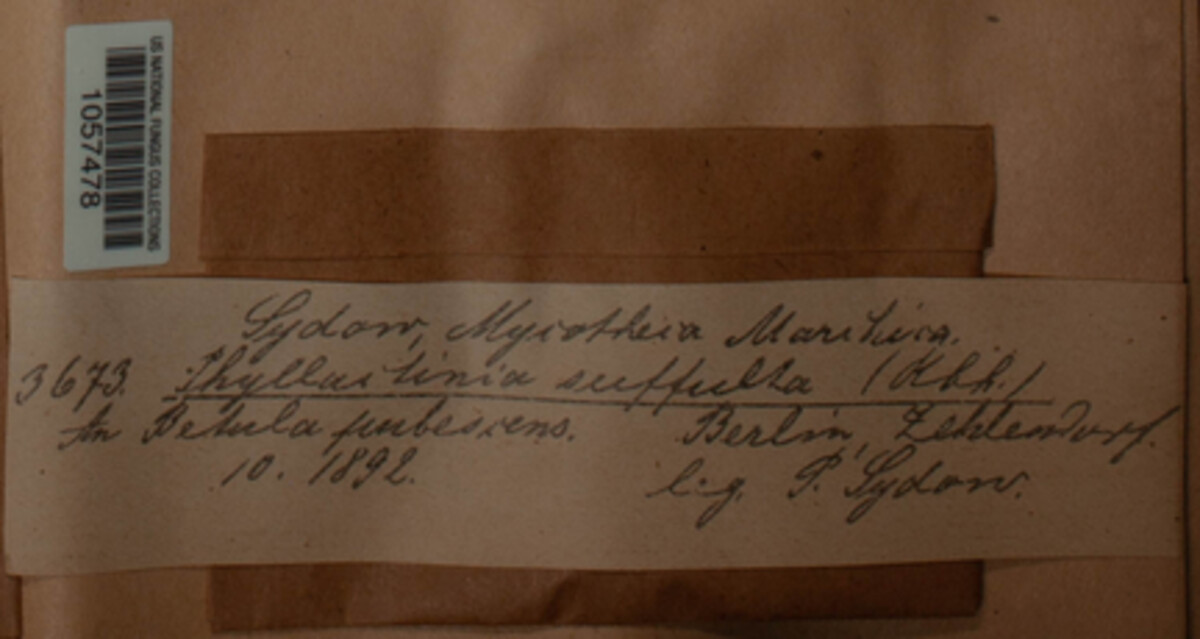 US NATIONAL FUNGUS COLLECTIONS
1057478
Sydow, Mycotheca Marchica.
3673. Phyllactinia suffulta (Rbh.)
An Betula pubescens. Berlin, Zehlendorf.
10. 1892. lig. P. Sydow.